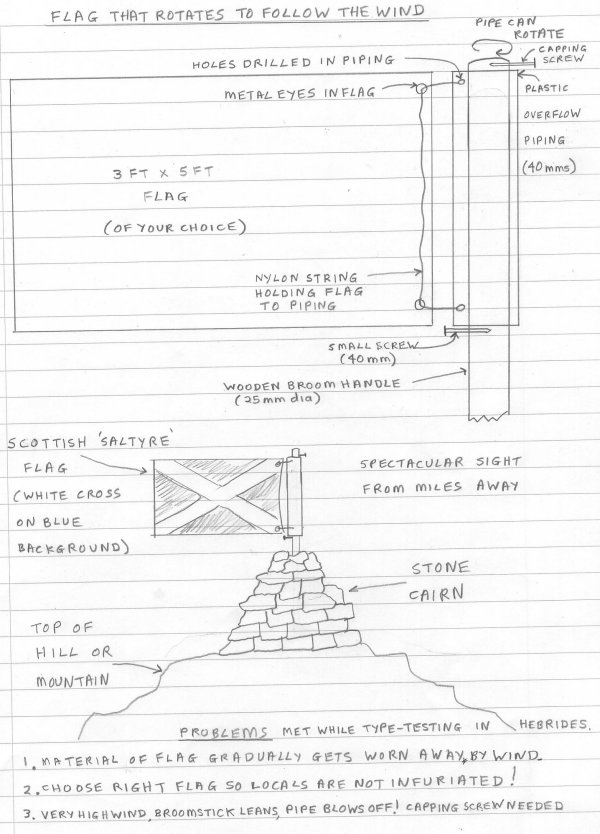 FLAG THAT ROTATES TO FOLLOW THE WIND
PIPE CAN
ROTATE
CAPPING
SCREW
HOLES DRILLED IN PIPING
METAL EYES IN FLAG
PLASTIC
OVERFLOW
PIPING
(40mms)
3 FT X 5 FT
FLAG
(OF YOUR CHOICE)
NYLON STRING
HOLDING FLAG
TO PIPING
SMALL SCREW
(40mm)
WOODEN BROOM HANDLE
(25mm dia)
SCOTTISH 'SALTYRE'
FLAG
(WHITE CROSS
ON BLUE
BACKGROUND)
SPECTACULAR SIGHT
FROM MILES AWAY
STONE
CAIRN
TOP OF
HILL OR
MOUNTAIN
PROBLEMS MET WHILE TYPE-TESTING IN HEBRIDES.
1. MATERIAL OF FLAG GRADUALLY GETS WORN AWAY, BY WIND.
2. CHOOSE RIGHT FLAG SO LOCALS ARE NOT INFURIATED!
3. VERY HIGH WIND, BROOMSTICK LEANS, PIPE BLOWS OFF! CAPPING SCREW NEEDED